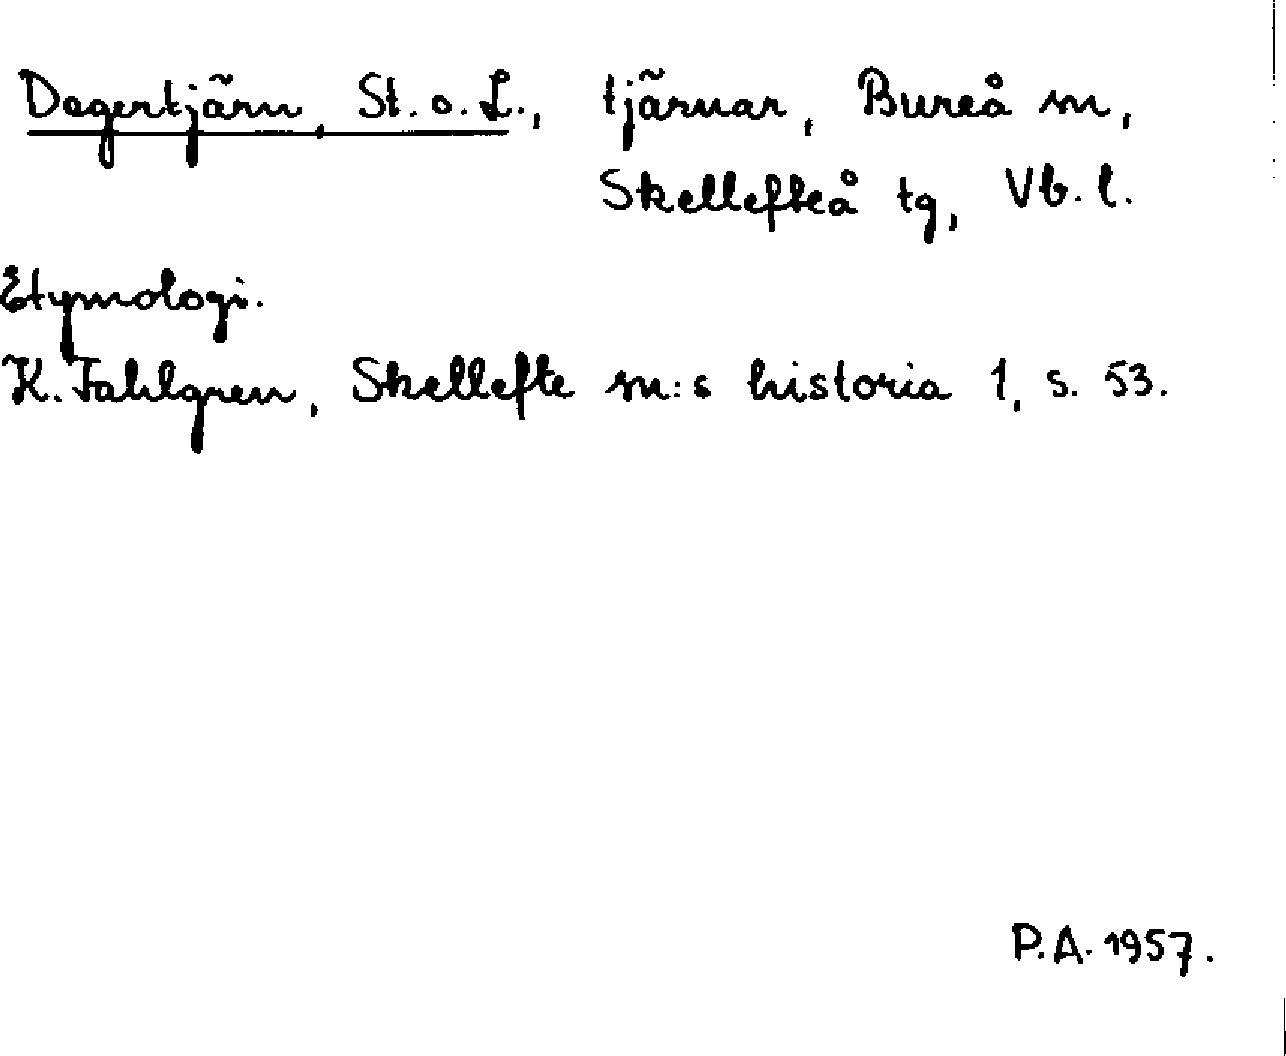 Dagertjärn, St. o. L., tjärnar, Bureå sn,
Skellefteå tg, Vb. l.
Etymologi.
K. Fahlgren, Skellefte sn:s historia 1, s. 53.
P.A. 1957.